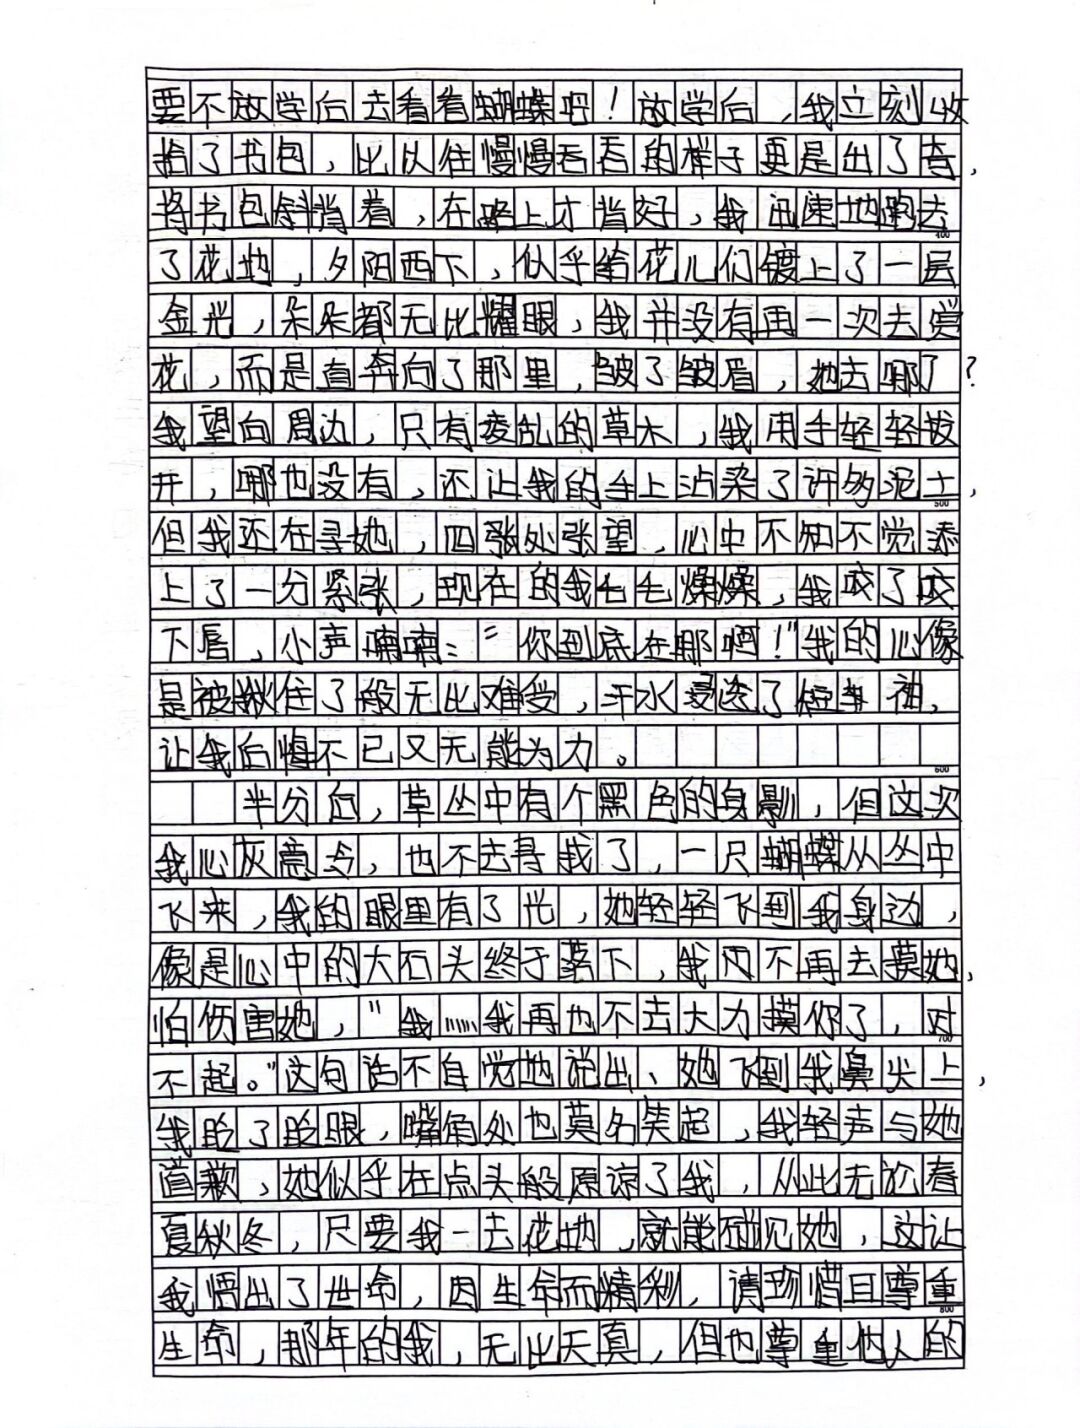 要不放学后去看看蝴蝶吧！放学后，我立刻收
拾了书包，比以往慢慢吞吞的样子更是出了奇，
将书包斜背着，在路上才背好，我迅速地跑去
400
了花地，夕阳西下，似乎给花儿们镀上了一层
金光，朵朵都无比耀眼，我并没有再一次去赏
花，而是直奔向了那里，皱了皱眉，她去哪了？
我望向周边，只有凌乱的草木，我用手轻轻拔
开，哪也没有，还让我的手上沾染了许多泥土，
500
但我还在寻她，四张处张望，心中不知不觉添
上了一分紧张，现在的我毛毛燥燥，我咬了咬
下唇，小声喃喃：“你到底在哪啊！”我的心像
是被揪住了般无比难受，汗水浸透了短半袖，
让我后悔不已又无能为力。
600
半分后，草丛中有个黑色的身影，但这次
我心灰意冷，也不去寻找了，一只蝴蝶从丛中
飞来，我的眼里有了光，她轻轻飞到我身边，
像是心中的大石头终于落下，我也不再去摸她，
怕伤害她，“我……我再也不去大力摸你了，对
700
不起。”这句话不自觉地说出、她飞到我鼻尖上，
我眨了眨眼，嘴角处也莫名笑起，我轻声与她
道歉，她似乎在点头般原谅了我，从此无论春
夏秋冬，只要我一去花地，就能碰见她，这让
我悟出了世命，因生命而精彩，请珍惜且尊重
800
生命，那年的我，无比天真，但也尊重他人的